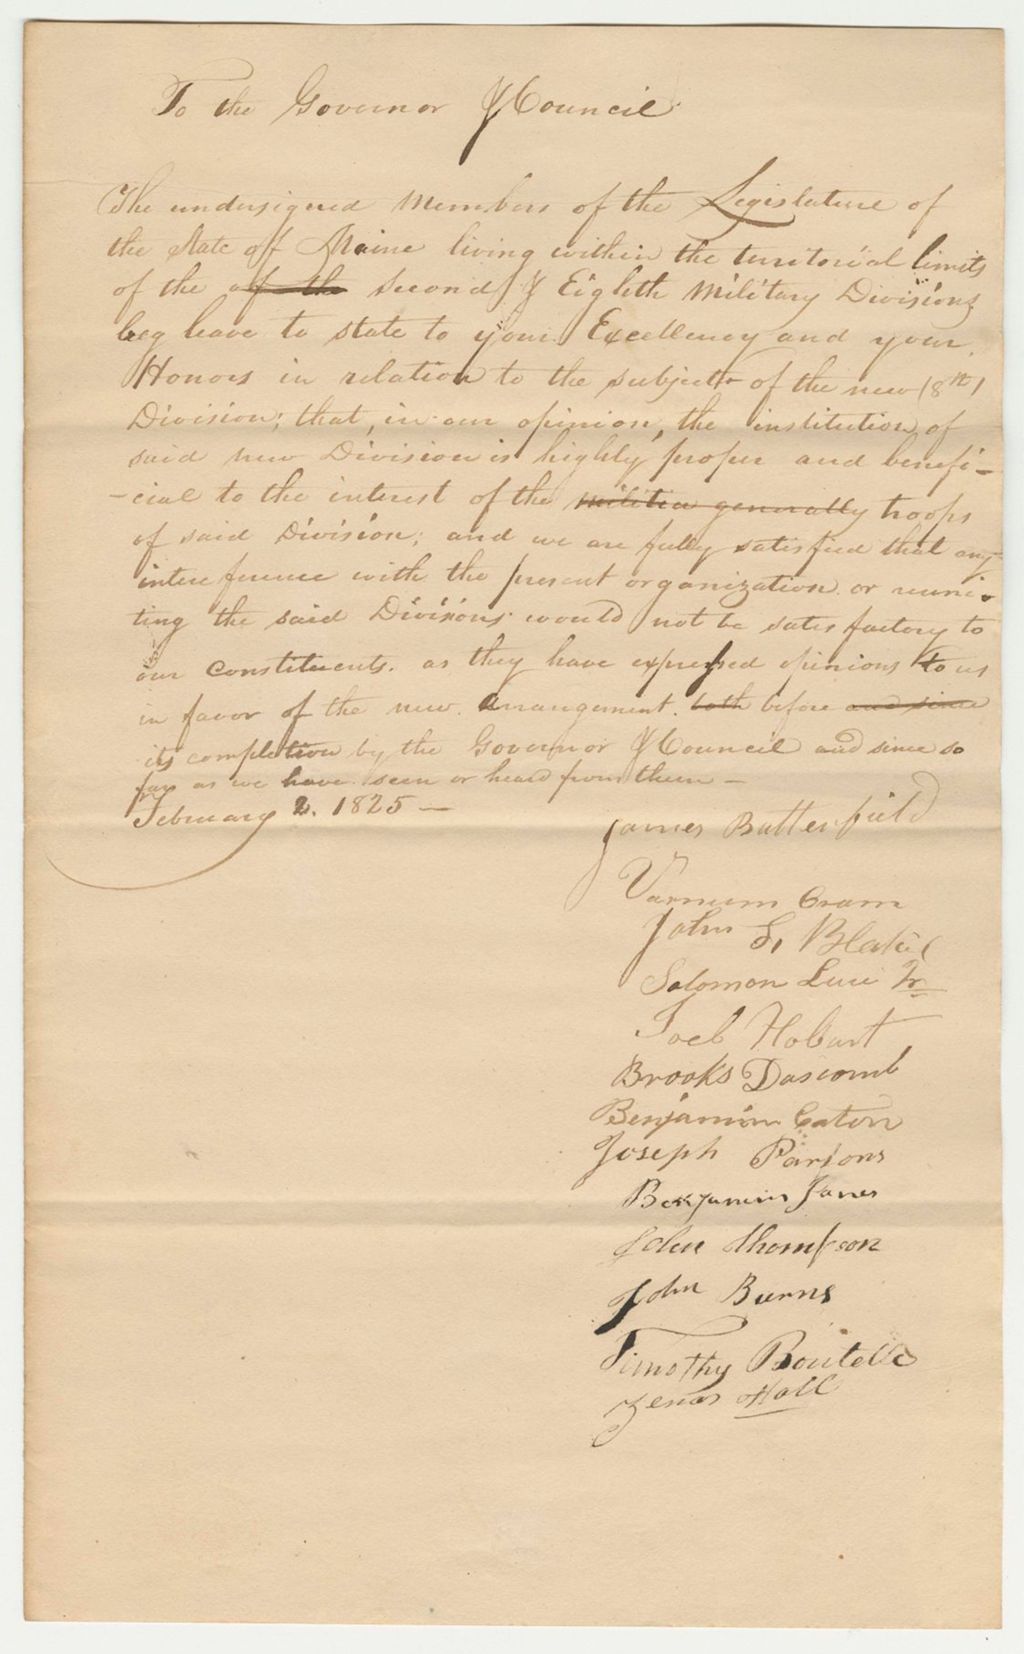 To the Governor & Council
The undersigned Members of the Legislature of
the State of Maine living within the territorial limits
of the of the second & Eighth Military Divisions
beg leave to state to your Excellency and your
Honors in relation to the subject of the new (8th)
Division; that, in our opinion, the institution of
said new Division is highly proper and benefi-
-cial to the interest of the militia generally troops
of said Division; and we are fully satisfied that any
interference with the present organization or reuni-
ting the said Divisions would not be satisfactory to
our constituents. as they have expressed opinions to us
in favor of the new arrangement. both before and since
its completion by the Governor & Council and since so
far as we have seen or heard from them —
February 2. 1825 —
James Butterfield
Varnum Cram
John S. Blake
Solomon Luce Jr
Joel Hobart
Brooks Dascomb
Benjamin Eaton
Joseph Parsons
Benjamin Jones
John Thompson
John Burns
Timothy Boutelle
Zenas Hall